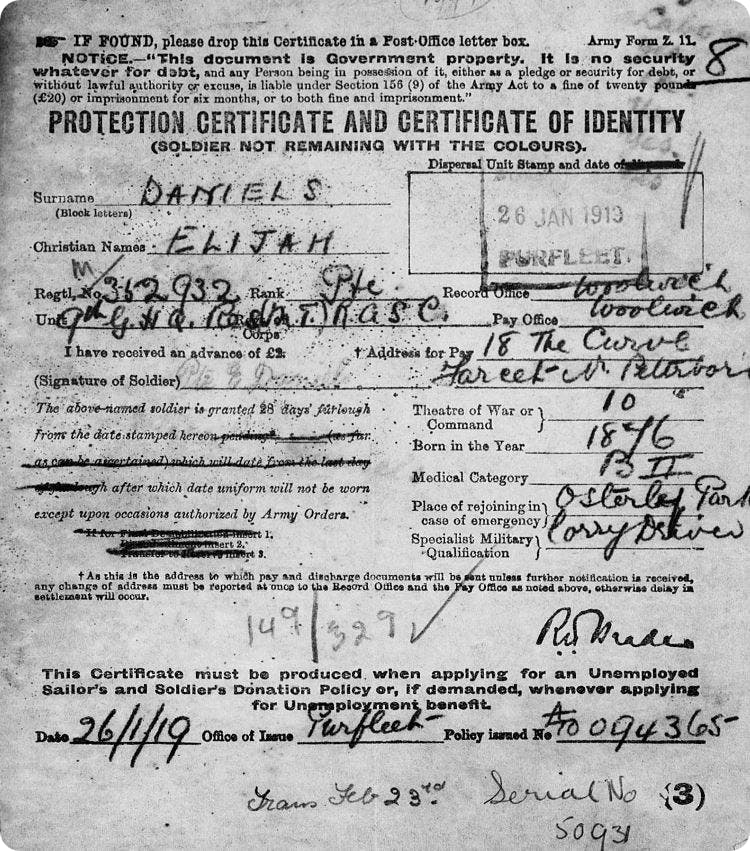 IF FOUND, please drop this Certificate in a Post-Office letter box. Army Form Z. 11.
NOTICE.—"This document is Government property. It is no security
whatever for debt, and any Person being in possession of it, either as a pledge or security for debt, or
without lawful authority or excuse, is liable under Section 156 (9) of the Army Act to a fine of twenty pounds
(£20) or imprisonment for six months, or to both fine and imprisonment."
8
PROTECTION CERTIFICATE AND CERTIFICATE OF IDENTITY
(SOLDIER NOT REMAINING WITH THE COLOURS).
Dispersal Unit Stamp and date of
Surname DANIELS
(Block letters)
26 JAN 1919
PURFLEET.
Christian Names ELIJAH
Regtl. No M/352932 Rank Pte Record Office Woolwich
Unit 9th G.H.Q. (M.T.) R A S C. Pay Office Woolwich
Corps
I have received an advance of £2. † Address for Pay 18 The Curve
(Signature of Soldier) Pte E Daniels Farcet Nr Peterboro
The above-named soldier is granted 28 days' furlough
from the date stamped hereon pending (as far
as can be ascertained) which will date from the last day
of furlough after which date uniform will not be worn
except upon occasions authorized by Army Orders.
If for Final Demobilization insert 1.
Disembodiment insert 2.
Transfer to Reserve insert 3.
Theatre of War or Command 10
Born in the Year 1876
Medical Category B II
Place of rejoining in case of emergency Osterley Park
Specialist Military Qualification Lorry Driver
† As this is the address to which pay and discharge documents will be sent unless further notification is received,
any change of address must be reported at once to the Record Office and the Pay Office as noted above, otherwise delay in
settlement will occur.
149/329
This Certificate must be produced when applying for an Unemployed
Sailor's and Soldier's Donation Policy or, if demanded, whenever applying
for Unemployment benefit.
Date 26/1/19 Office of Issue Purfleet Policy issued No 094365
Trans Feb 23rd Serial No (3)
50931